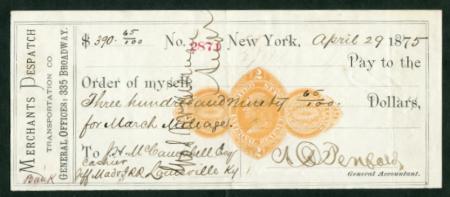 MERCHANTS DESPATCH
TRANSPORTATION CO
GENERAL OFFICES: 335 BROADWAY.
Bank
$390. 65/100 No. 2871 New York, April 29 1875
Pay to the
Order of myself
Three hundred and Ninety 65/100 Dollars,
for March Mileage.
To J. H. McCampbell Esq
Cashier
Jeff Mad & I RR. Louisville Ky
General Accountant.